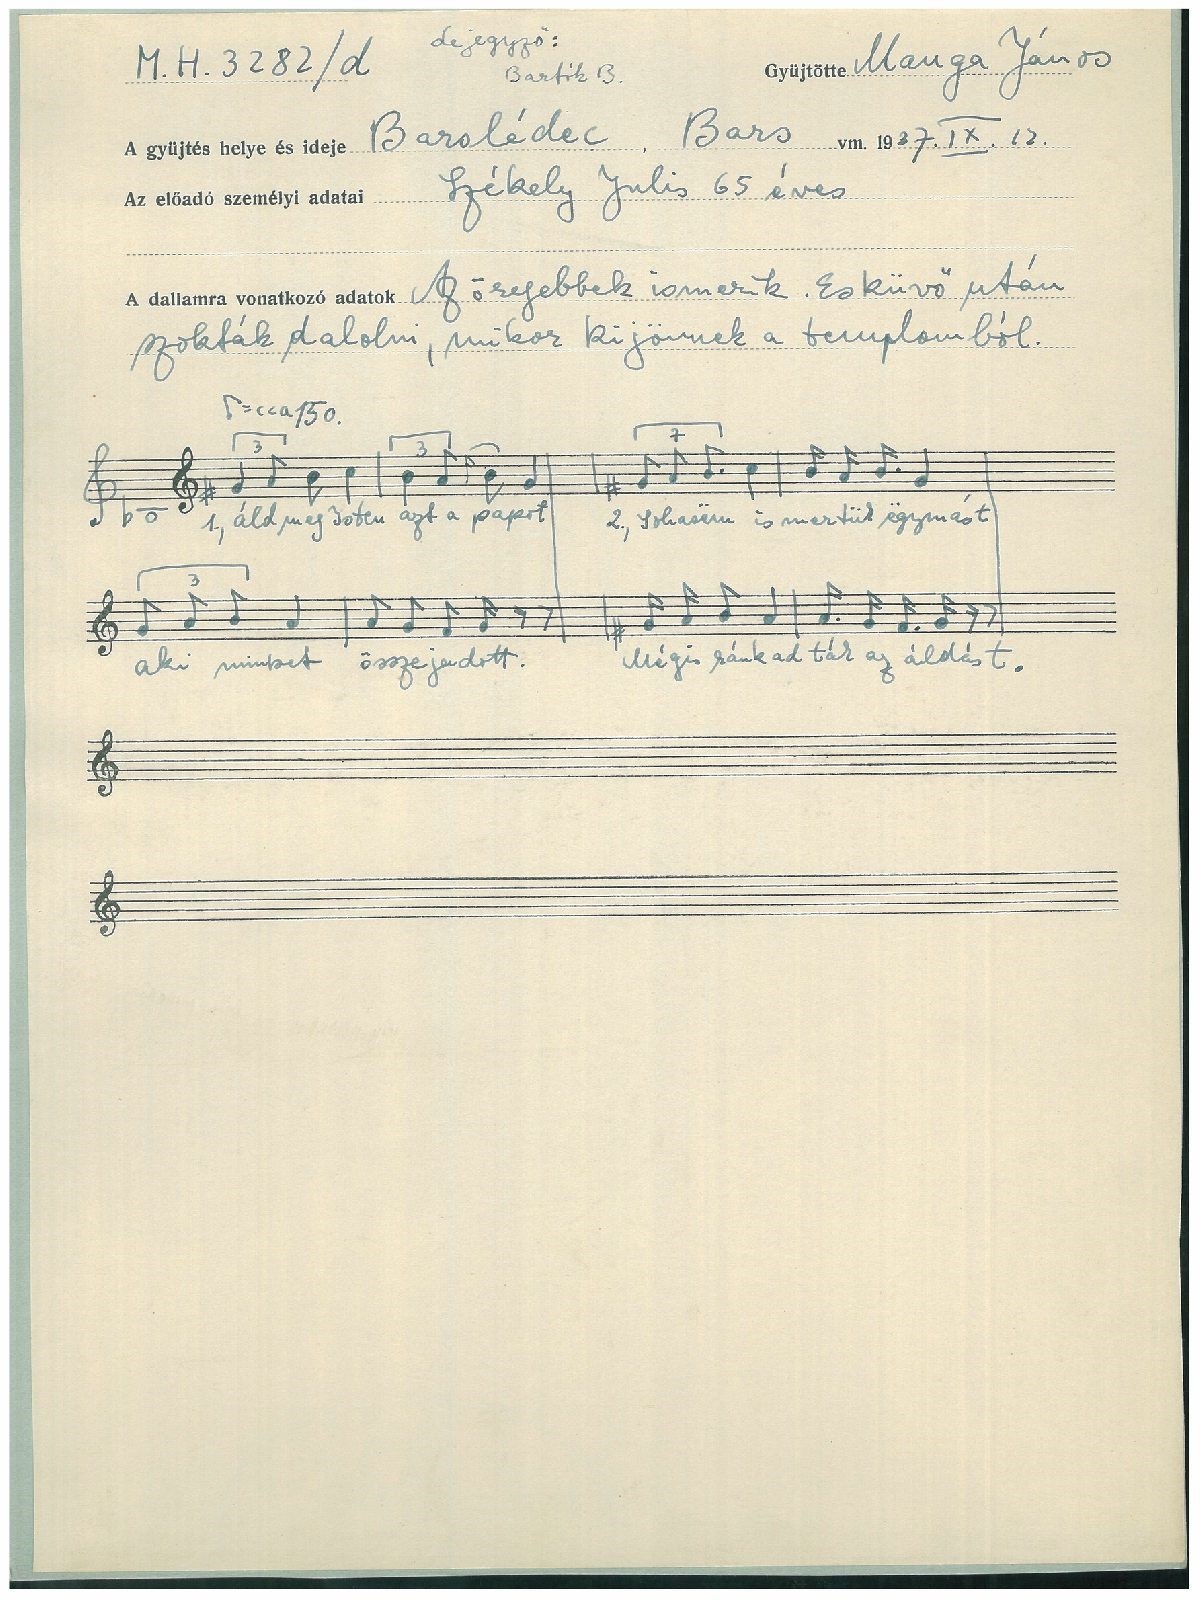 M.H. 3282/d
lejegyző:
Bartók B.
Gyüjtötte Manga János
A gyüjtés helye és ideje Barslédec, Bars vm. 1937. IX. 12.
Az előadó személyi adatai Székely Julis 65 éves
A dallamra vonatkozó adatok Az öregebbek ismerik. Esküvő után
szokták dalolni, mikor kijönnek a templomból.
=cca 150.
3 3 7
1, áld meg Isten azt a papot 2., Sohasëm ismertük ëgymást
3
aki minket összejadott. Mégis ránk adták az áldást.